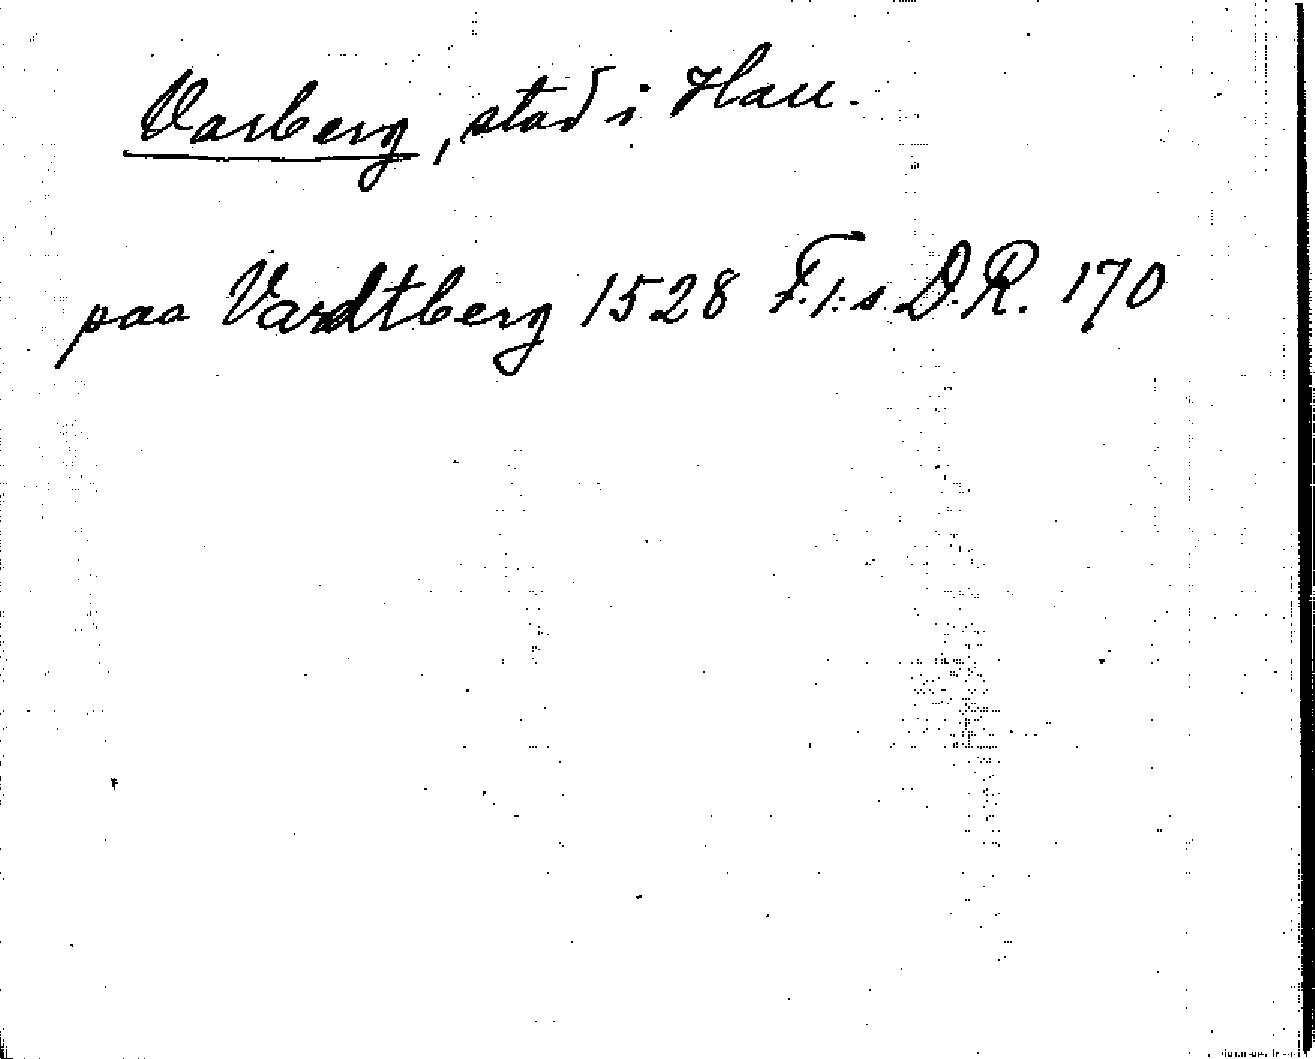 Varberg, stad i Hall.
paa Vardtberg 1528 F.I:s D.R. 170